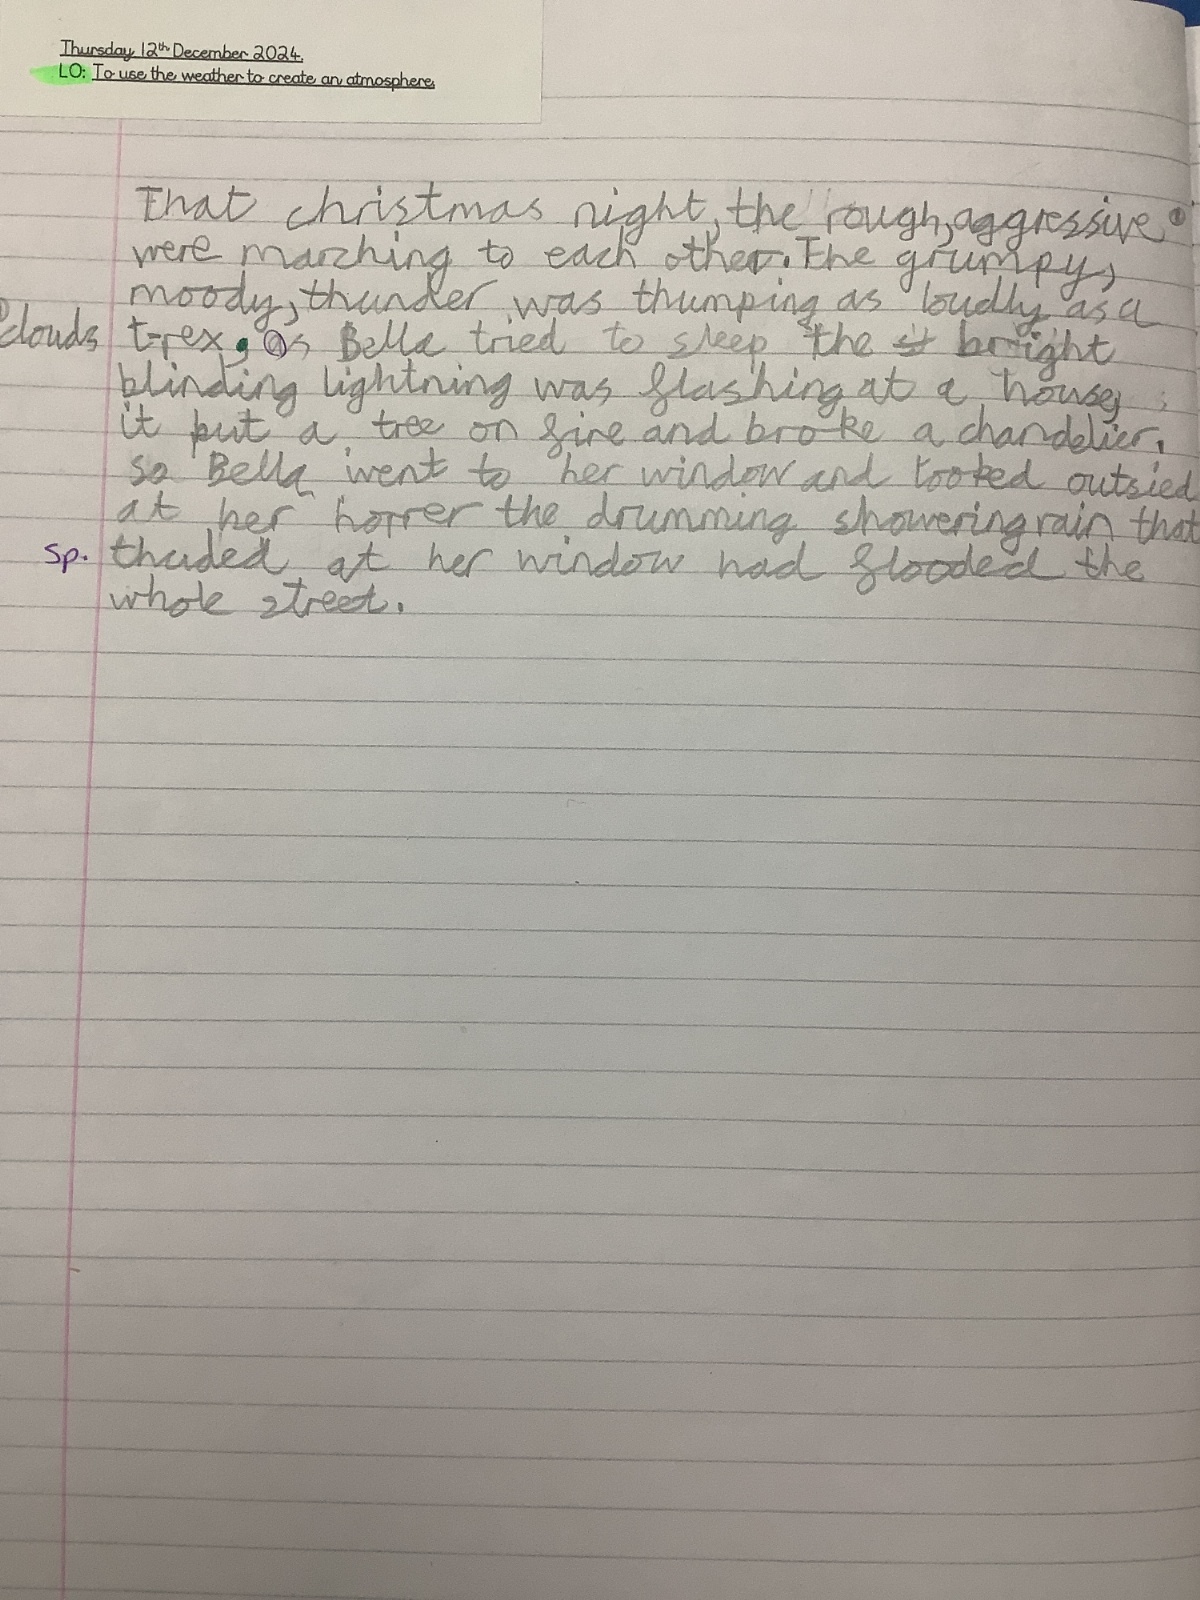 Thursday 12th December 2024.
LO: To use the weather to create an atmosphere.
That christmas night, the rough, aggressive ①
were marching to each other. The grumpy,
moody, thunder was thumping as loudly as a
① clouds t-rex. as Bella tried to sleep the bright
blinding lightning was flashing at a house,
it put a tree on fire and broke a chandelier.
so Bella went to her window and looked outsied
at her horrer the drumming showering rain that
sp. thuded at her window had flooded the
whole street.